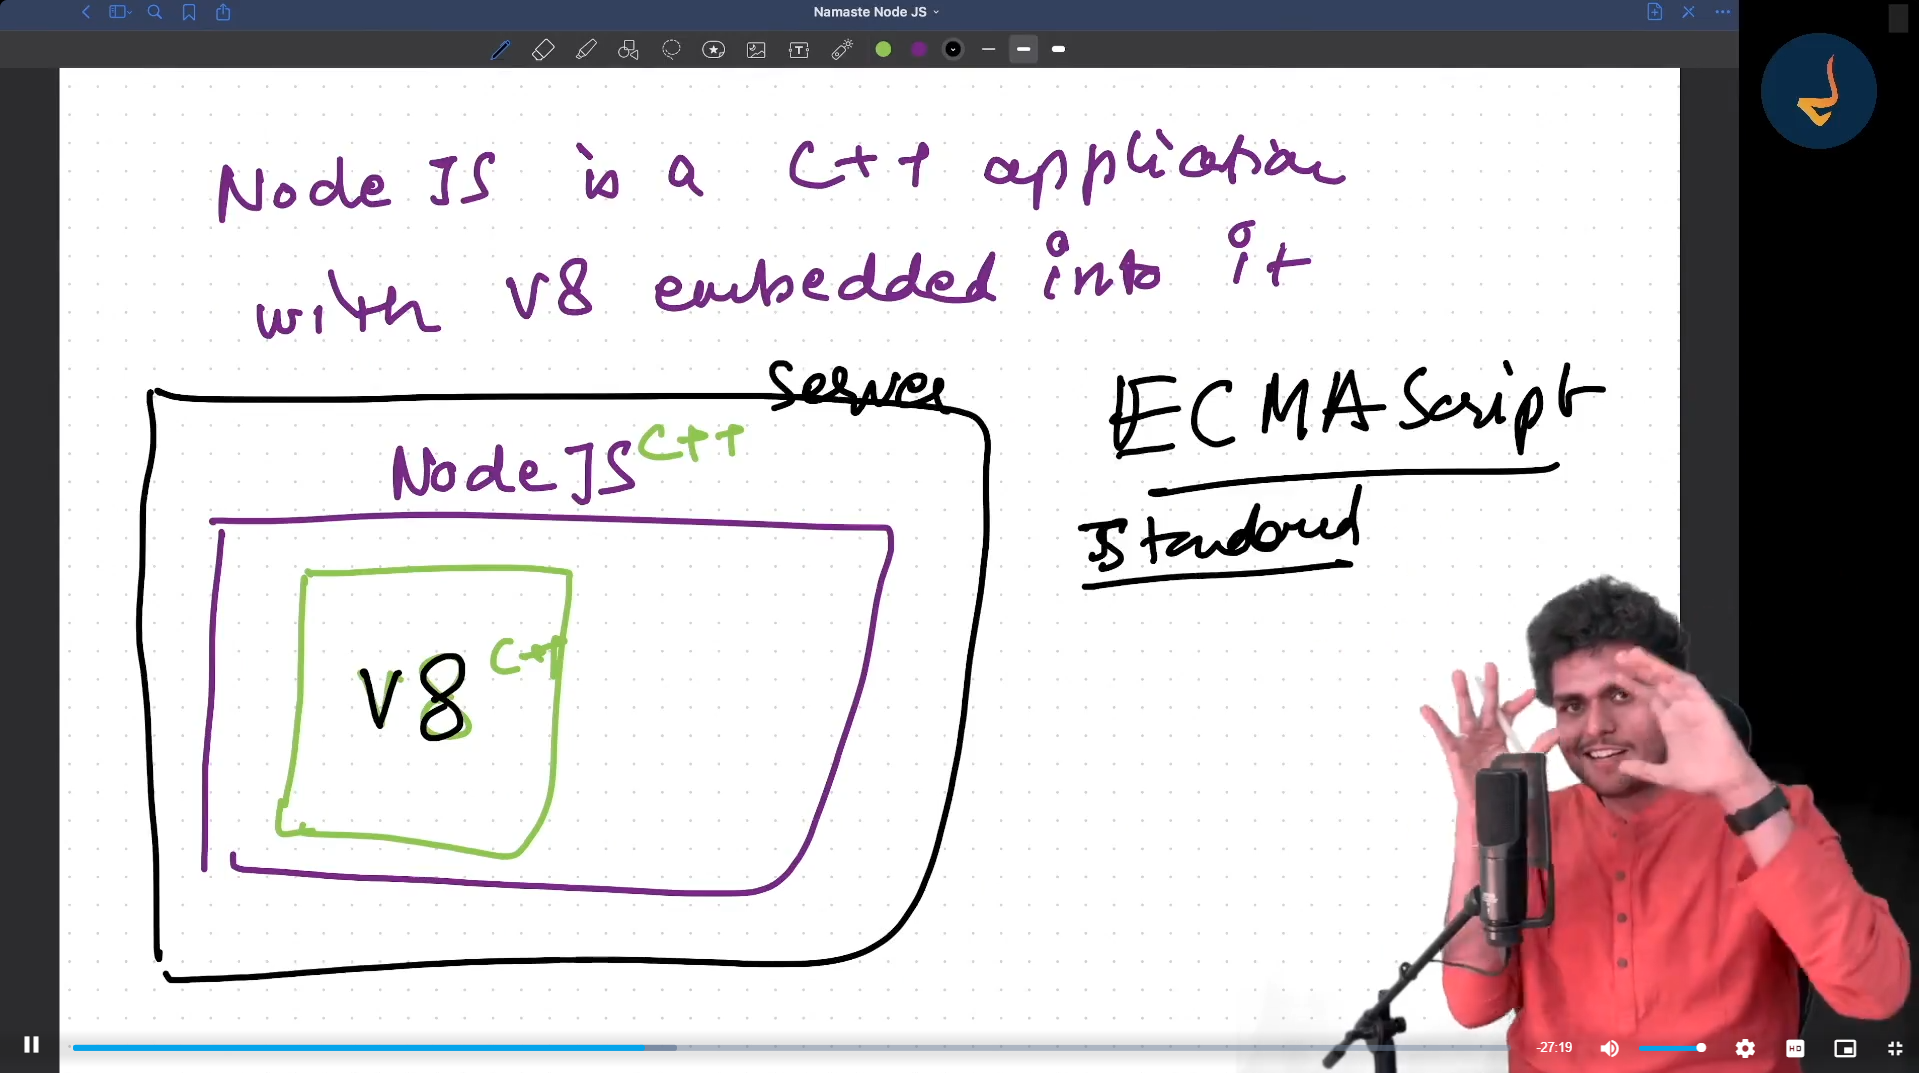 Namaste Node JS
Node JS is a C++ application
with V8 embedded into it
Server
Node JS C++
V8 C++
ECMA Script
Standard
-27:19
HD